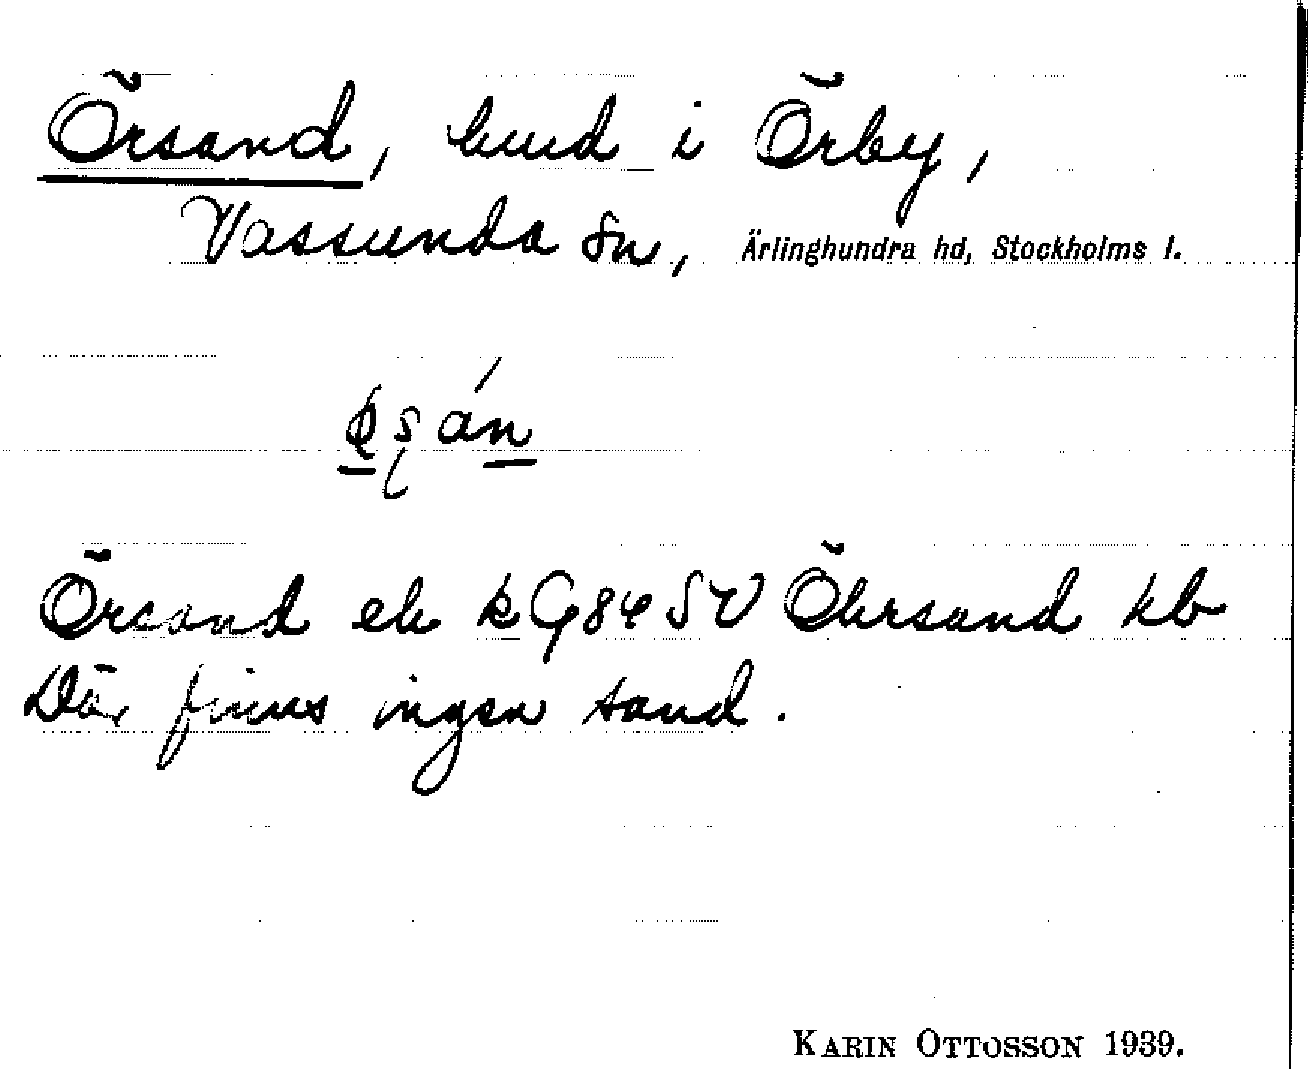 Örsand, lund i Örby,
Vassunda sn, Ärlinghundra hd, Stockholms l.
Örsand ek k G84SV Öhrsand kb
Där finns ingen sand.
KARIN OTTOSSON 1939.